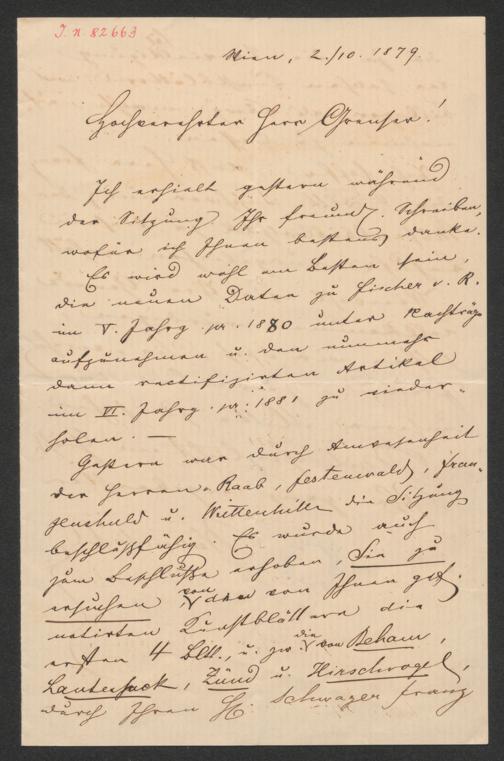 I. n. 82663
Wien, 2./10. 1879.
Hochverehrter Herr Grenser!
Ich erhielt gestern während
der Sitzung Ihr freundl. Schreiben,
wofür ich Ihnen bestens danke.
Es wird wohl am Besten sein,
die neuen Daten zu Fischer v. R.
im V. Jahrg. pr. 1880 unter Nachträge
aufzunehmen u. den nunmehr
dann rectifizirten Artikel
im VI. Jahrg. pr. 1881 zu wieder-
holen. —
Gestern war durch Anwesenheit
der Herren Raab, Hartenwald, Fran-
zenshuld u. Weittenhiller die Sitzung
beschlußfähig. Es wurde auch
zum Beschluße erhoben, Sie zu
ersuchen von den von Ihnen gef.
notirten Kunstblättern die
ersten 4 Bltt., u. zw. die von Beham,
Lautensack, Zünd u. Hirschvogel,
durch Ihren H. Schwager Franz